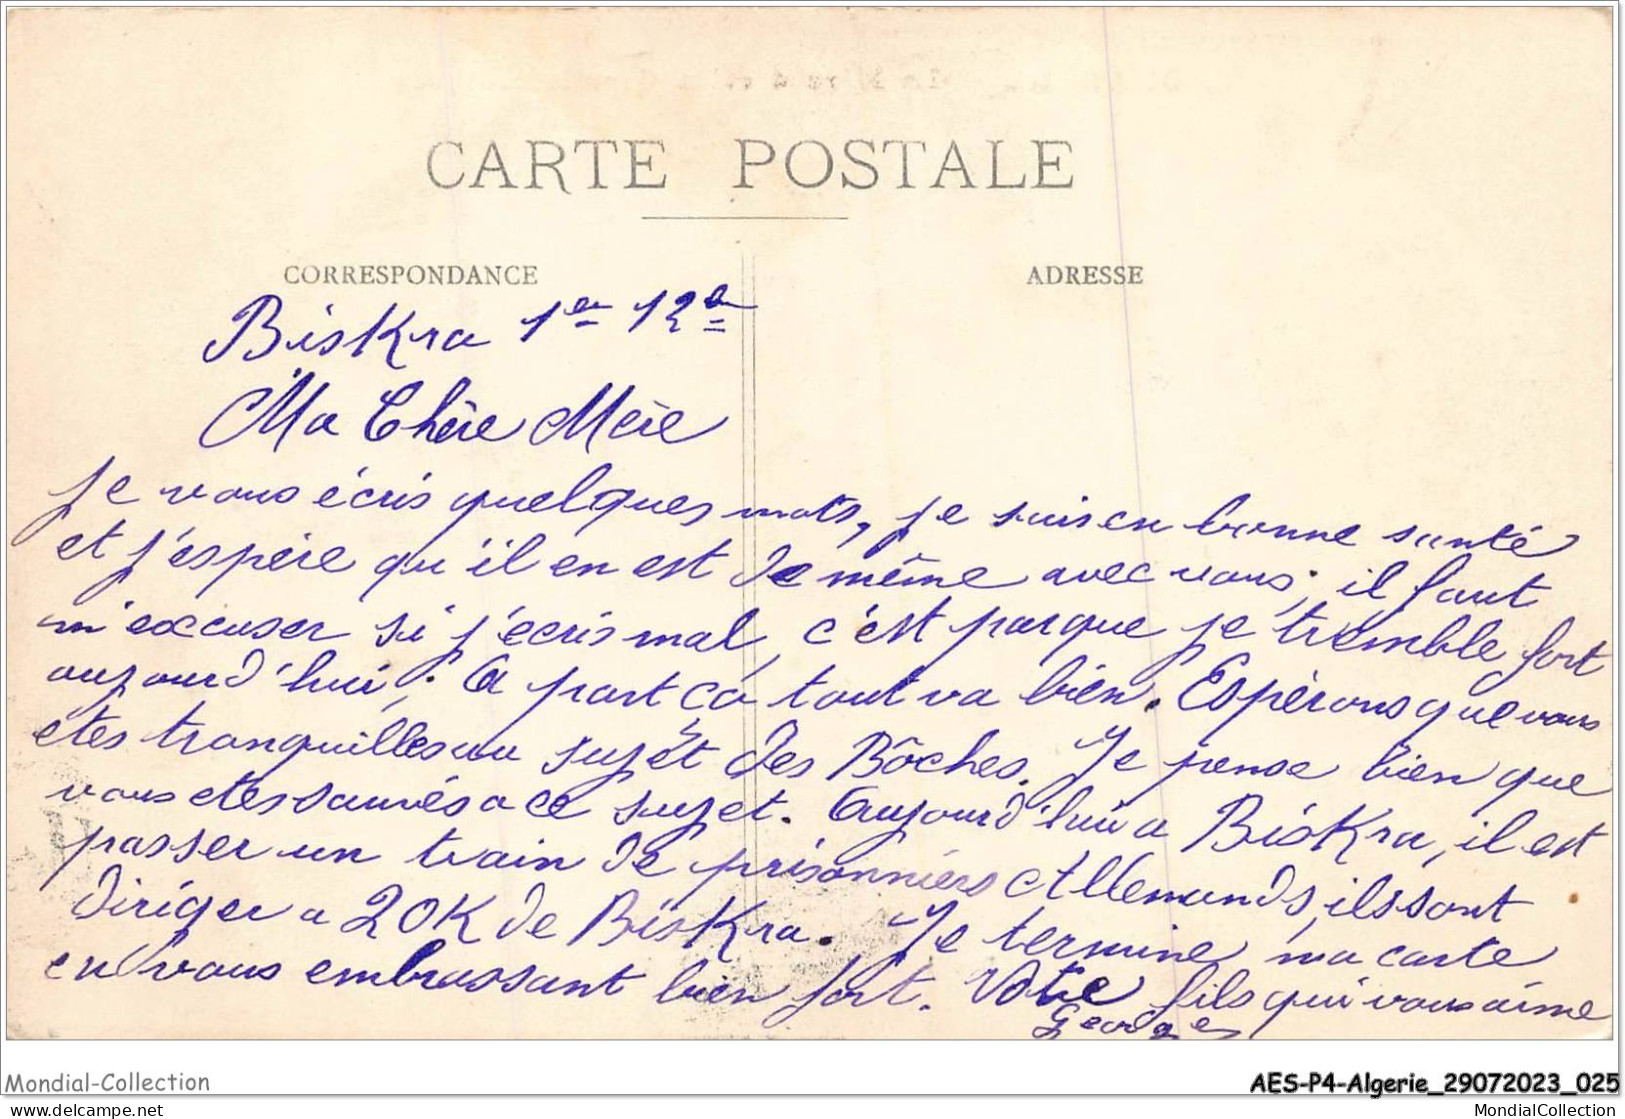 CARTE POSTALE
CORRESPONDANCE
ADRESSE
Biskra 1er 12e
Ma Chère Mère
je vous écris quelques mots, je suis en bonne santé
et j'espère qu'il en est de même avec vous; il faut
m'excuser si j'écris mal, c'est parque je tremble fort
aujourd'hui; A part ça tout va bien. Espérons que vous
etes tranquilles au sujet des Bôches. Je pense bien que
vous etes sauvés a ce sujet. Aujourd'hui a Biskra, il est
passer un train de prisonniers Allemands, ils sont
diriger a 20K de Biskra. Je termine ma carte
en vous embrassant bien fort. Votre fils qui vous aime
Georges
Mondial-Collection
AES-P4-Algerie_29072023_025
picture upload by delcampe.net
MondialCollection